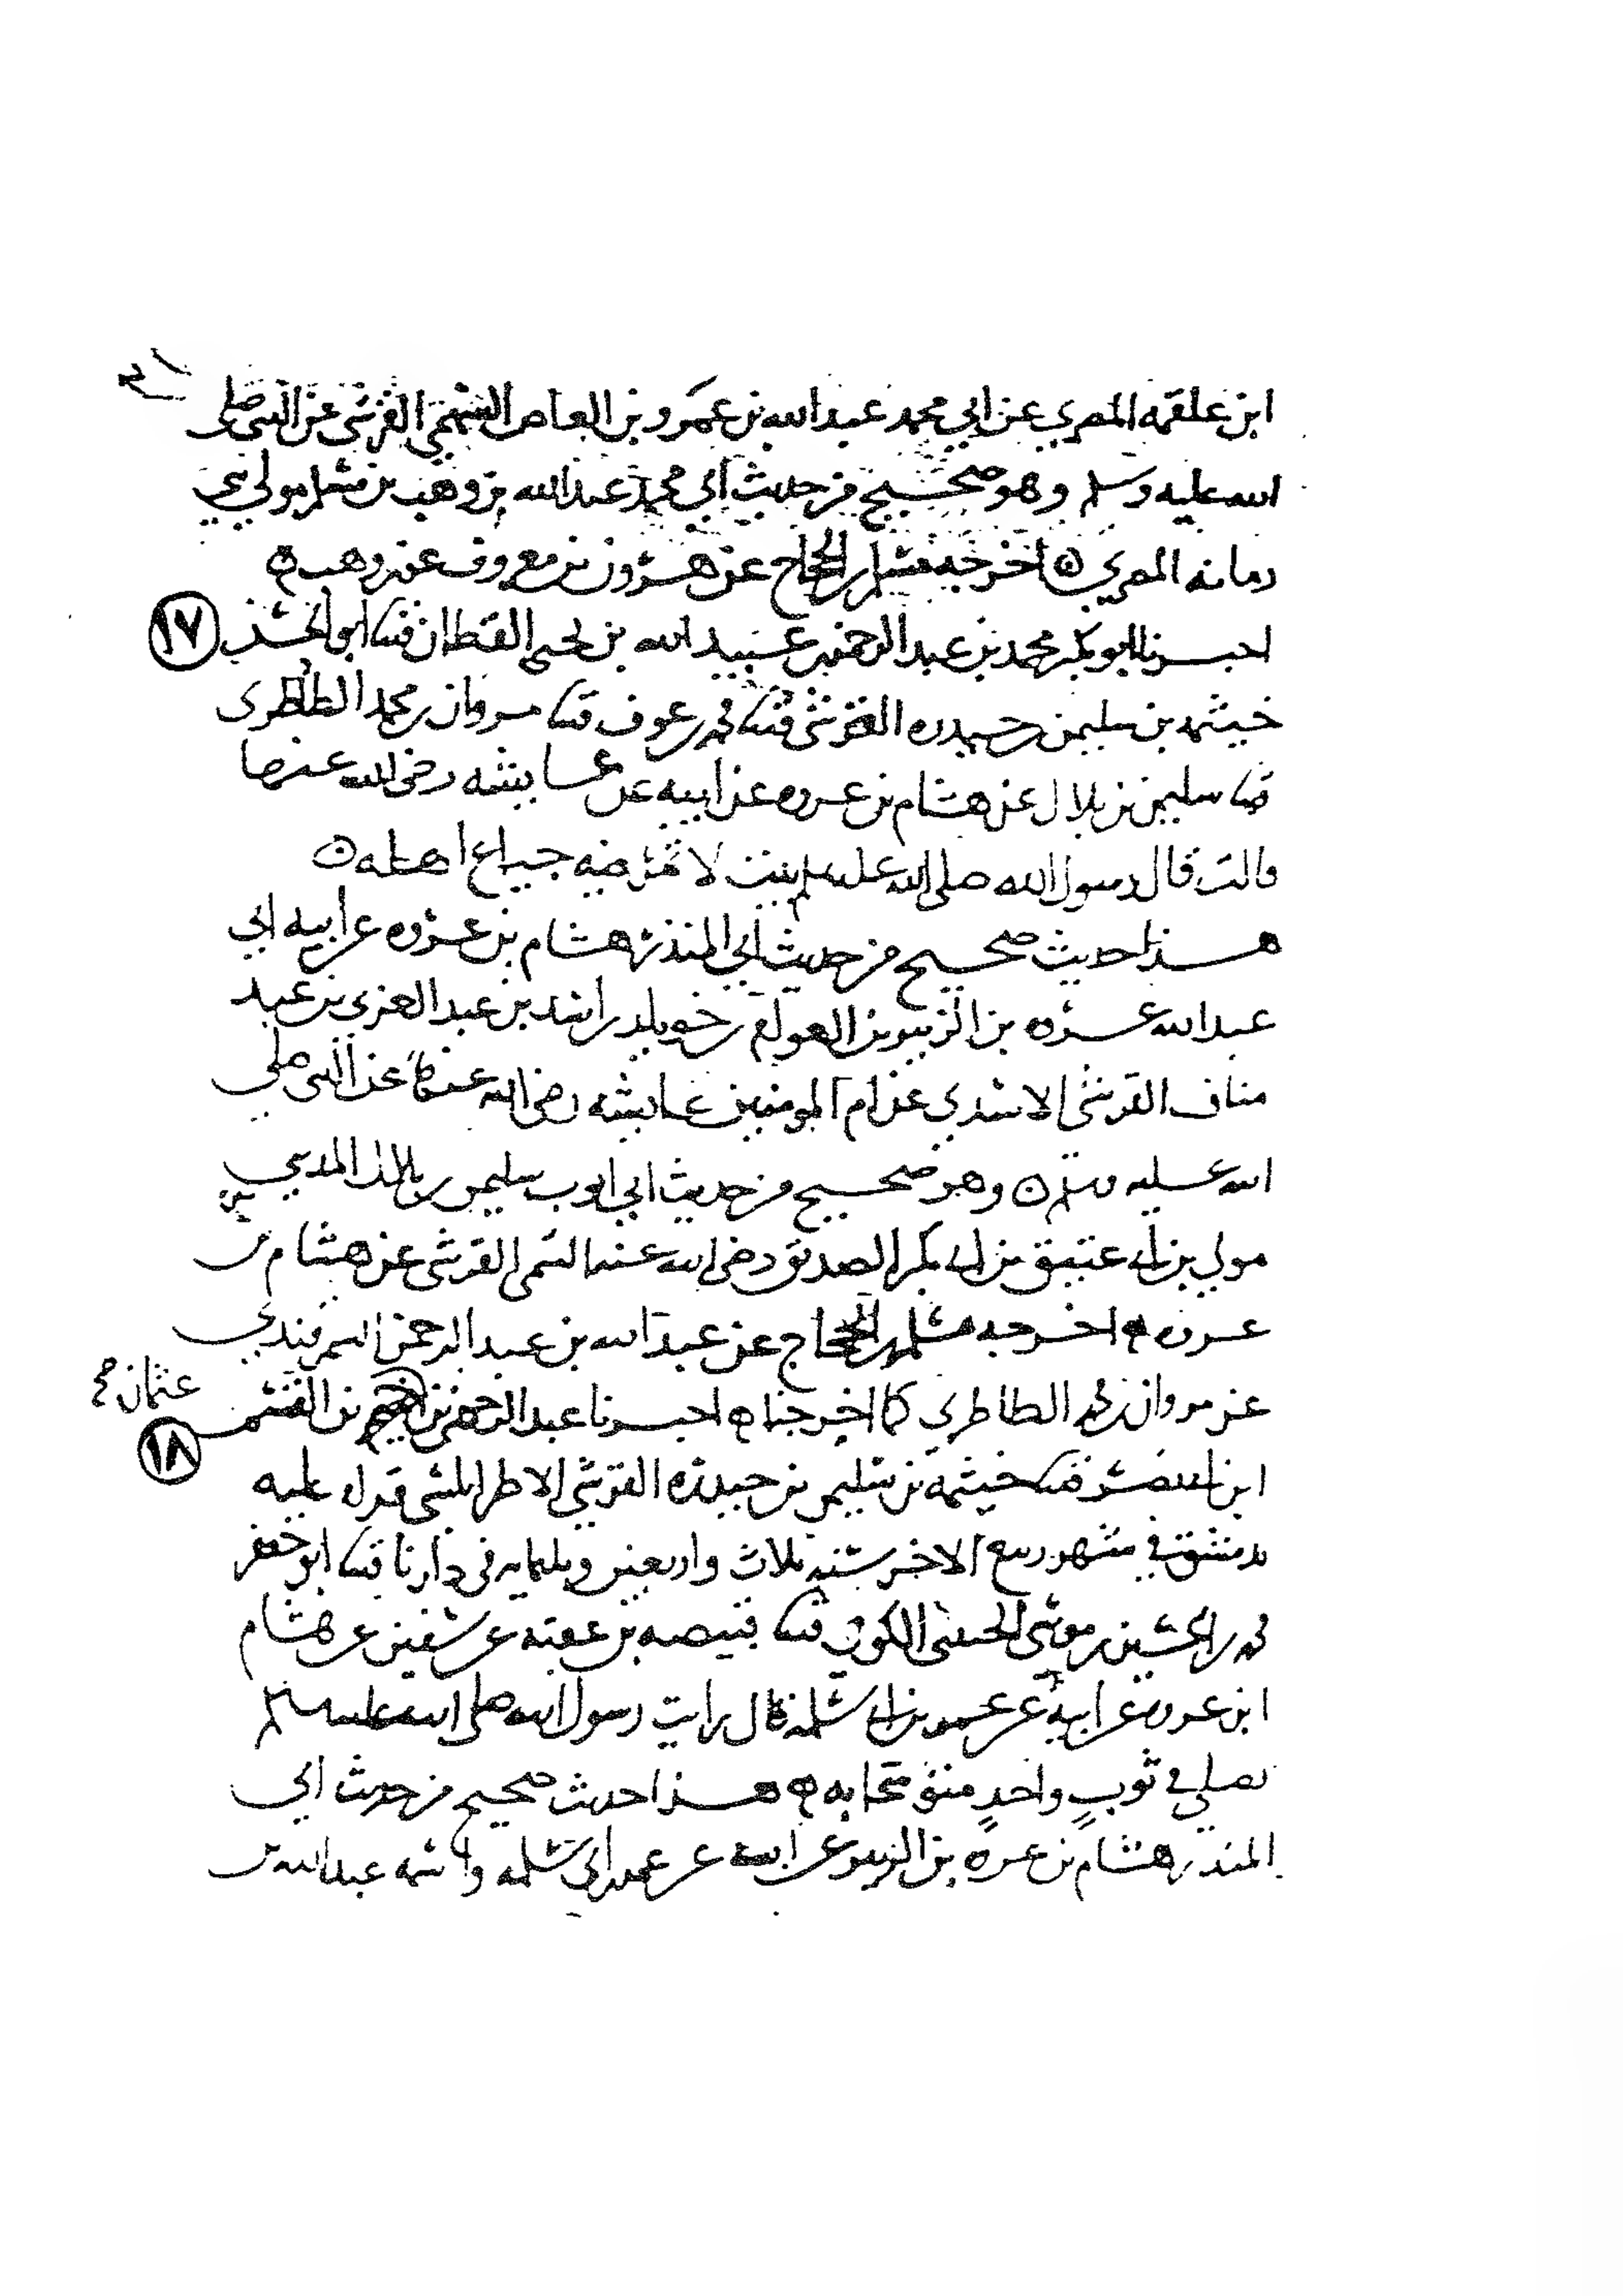 ابن علقمه المصري عن ابي محمد عبد الله بن عمرو بن العاص السهمي القرشي عن النبي صلى
الله عليه وسلم وهو صحيح من حديث ابي محمد عبد الله بن وهب بن مسلم مولي بني
رمانه المصري ه اخرجه مسلم بن الحجاج عن هرون بن معروف عن بن وهب ه
اخبرنا ابو بكر محمد بن عبد الرحمن بن عبيد الله بن يحيى القطان قثنا ابو الحسن
١٧
خيثمه بن سليمن بن حيدره القرشي قثنا محمد بن عوف قثنا مروان بن محمد الطاطري
قثنا سليمن بن بلال عن هشام بن عروه عن ابيه عن عايشه رضي الله عنها
قالت قال رسول الله صلى الله عليه وسلم بيت لا تمر فيه جياع اهله ه
هذا حديث صحيح من حديث ابي المنذر هشام بن عروه عن ابيه ابي
عبد الله عروه بن الزبير بن العوام بن خويلد بن اسد بن عبد العزي بن عبد
مناف القرشي الاسدي عن ام المومنين عايشه رضي الله عنها عن النبي صلى
الله عليه وسلم ه وهو صحيح من حديث ابي ايوب سليمن بن بلال المديني
مولي بن ابي عتيق بن ابي بكر الصديق رضي الله عنه التيمي القرشي عن هشام بن
عروه ه اخرجه مسلم بن الحجاج عن عبد الله بن عبد الرحمن السمرقندي
عن مروان بن محمد الطاطري كما اخرجناه ه اخبرنا عبد الرحمن بن عثمان بن القسم
عثمان صح
١٨
ابن ابي نصر قثنا خيثمه بن سليمن بن حيدره القرشي الاطرابلسي قراه عليه
بدمشق في شهر ربيع الاخر سنه ثلاث واربعين وثلثمايه في دارنا قثنا ابو جعفر
محمد بن الحسين بن موسى الحنيني الكوفي قثنا قبيصه بن عقبه عن سفين عن هشام
ابن عروه عن ابيه عن عمر بن ابي سلمه قال رايت رسول الله صلى الله عليه وسلم
يصلي في ثوب واحد متوشحا به ه هذا حديث صحيح من حديث ابي
المنذر هشام بن عروه بن الزبير عن ابيه عن عمر بن ابي سلمه واسمه عبد الله بن